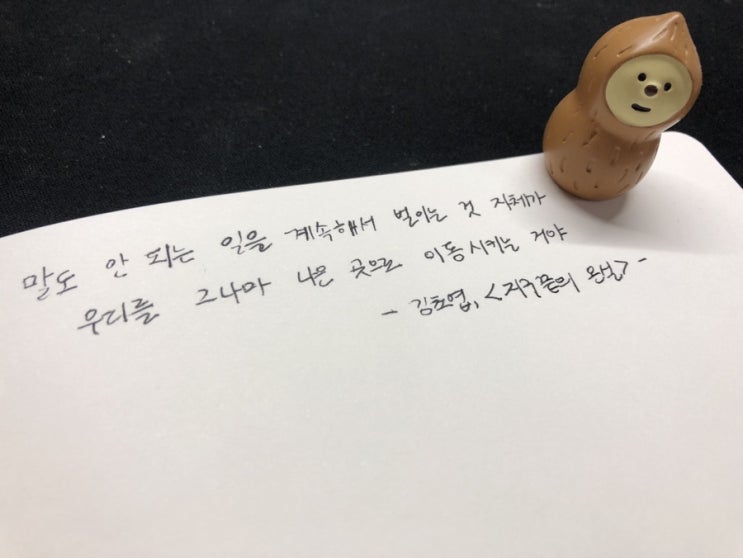 말도 안 되는 일을 계속해서 벌이는 것 자체가
우리를 그나마 나은 곳으로 이동시키는 거야
- 김초엽, <지구 끝의 온실> -